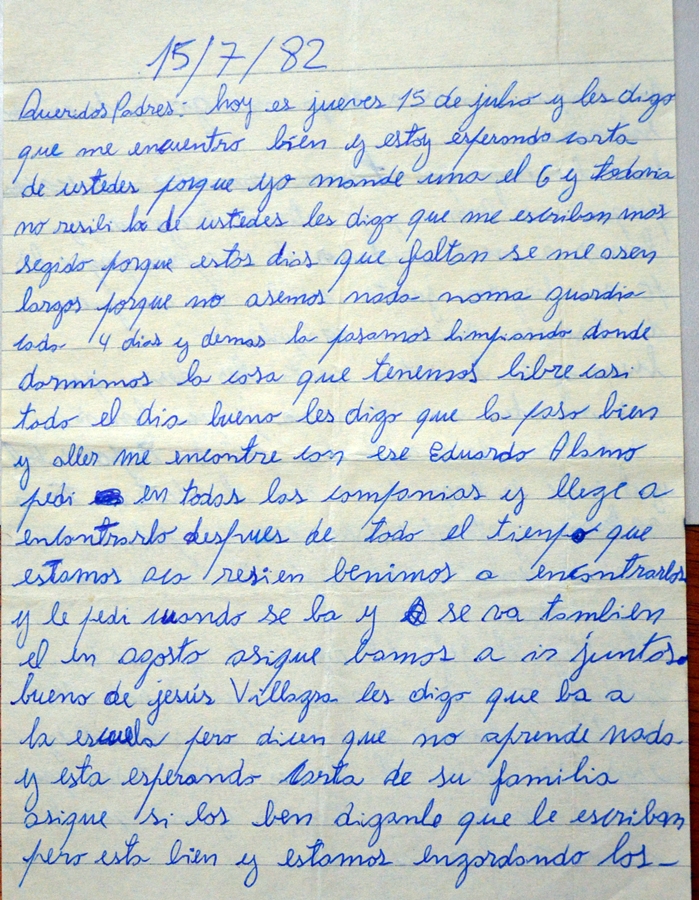 15/7/82
Queridos Padres: hoy es jueves 15 de julio y les digo
que me encuentro bien y estoy esperando carta
de ustedes porque yo mande una el 6 y todavia
no resibi la de ustedes les digo que me escriban mas
segido porque estos dias que faltan se me asen
largos porque no asemos nada noma guardia
cada 4 dias y demas la pasamos limpiando donde
dormimos la cosa que tenemos libre casi
todo el dia bueno les digo que la paso bien
y aller me encontre con ese Eduardo Alamo
pedi en todas las companias y llege a
encontrarlo despues de todo el tiempo que
estamos aca resien benimos a encontrarlos
y le pedi cuando se ba y se va tambien
el en agosto asique bamos a ir juntos.
bueno de jesús Villagra les digo que ba a
la escuela pero dicen que no aprende nada
y esta esperando carta de su familia
asique si los ben diganle que le escriban
pero esta bien y estamos engordando los-